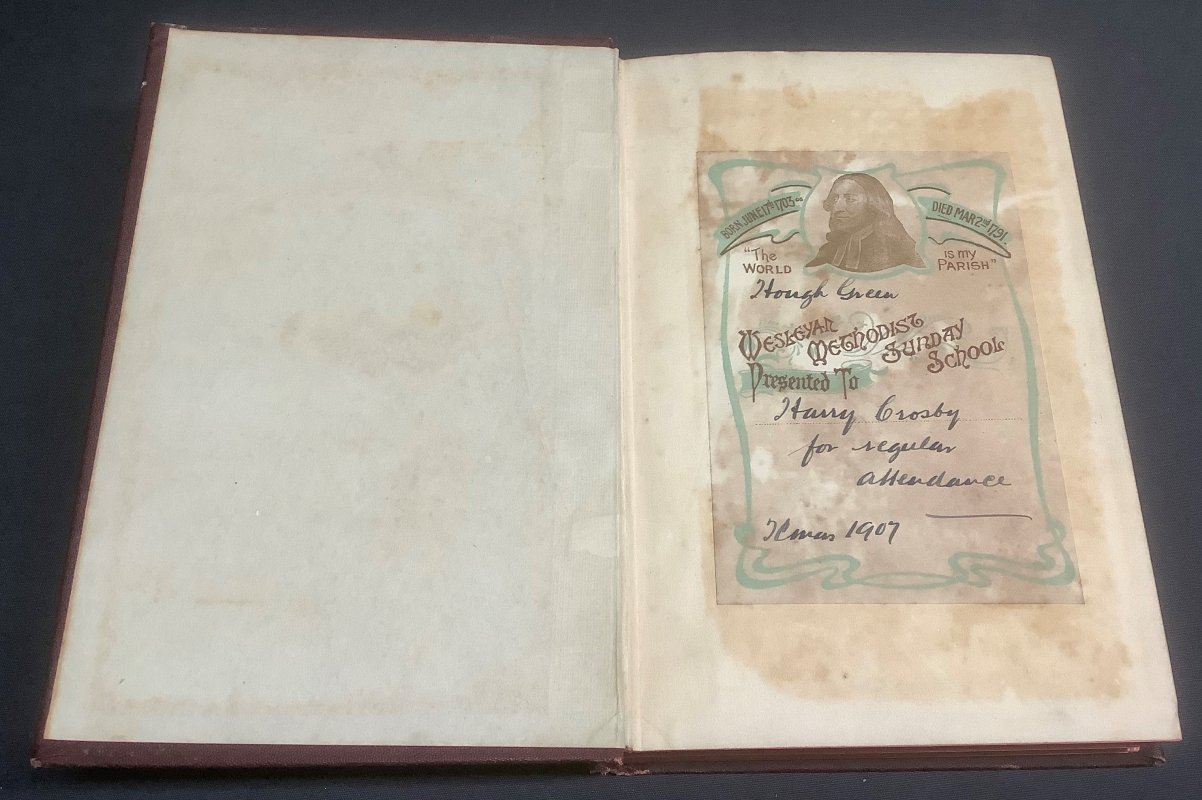 BORN JUNE 17th 1703
DIED MAR 2nd 1791.
"The WORLD
is my PARISH"
Hough Green
WESLEYAN METHODIST SUNDAY SCHOOL
Presented To
Harry Crosby
for regular
attendance
Xmas 1907